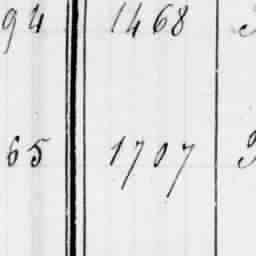 94 1468
65 1707